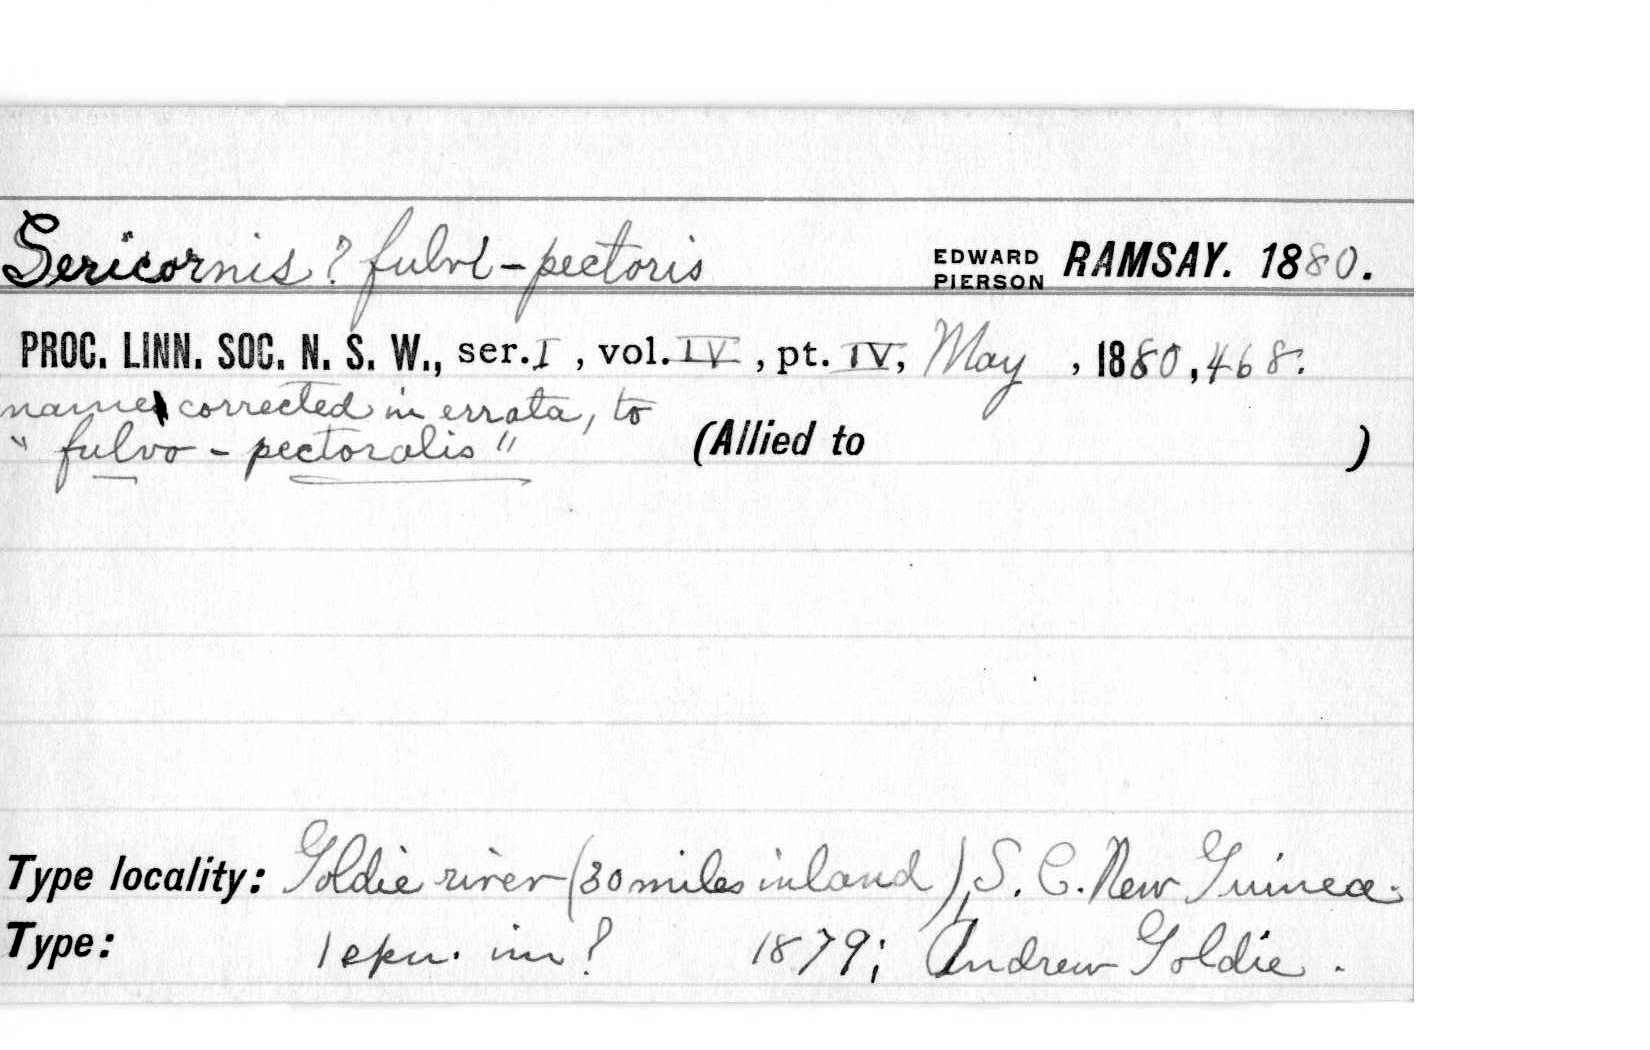 Sericornis ? fulvi-pectoris EDWARD PIERSON RAMSAY. 1880.
PROC. LINN. SOC. N. S. W., ser. I , vol. IV , pt. IV, May , 1880, 468.
name corrected in errata, to
"fulvo-pectoralis" (Allied to )
Type locality: Goldie river (30 miles inland), S. E. New Guinea.
Type: 1 spn. im? 1879; Andrew Goldie.